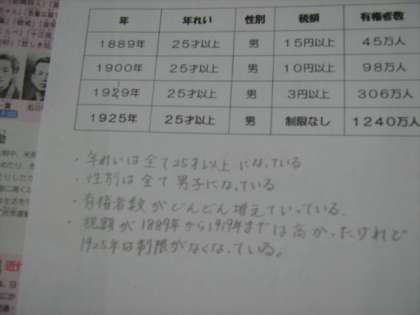 年 年れい 性別 税額 有権者数
1889年 25才以上 男 15円以上 45万人
1900年 25才以上 男 10円以上 98万人
1919年 25才以上 男 3円以上 306万人
1925年 25才以上 男 制限なし 1240万人
・年れいは全て25才以上になっている
・性別は全て男子になっている
・有権者数がどんどん増えていっている。
・税額が1889年から1919年までは高かったけれど
1925年は制限がなくなっている。